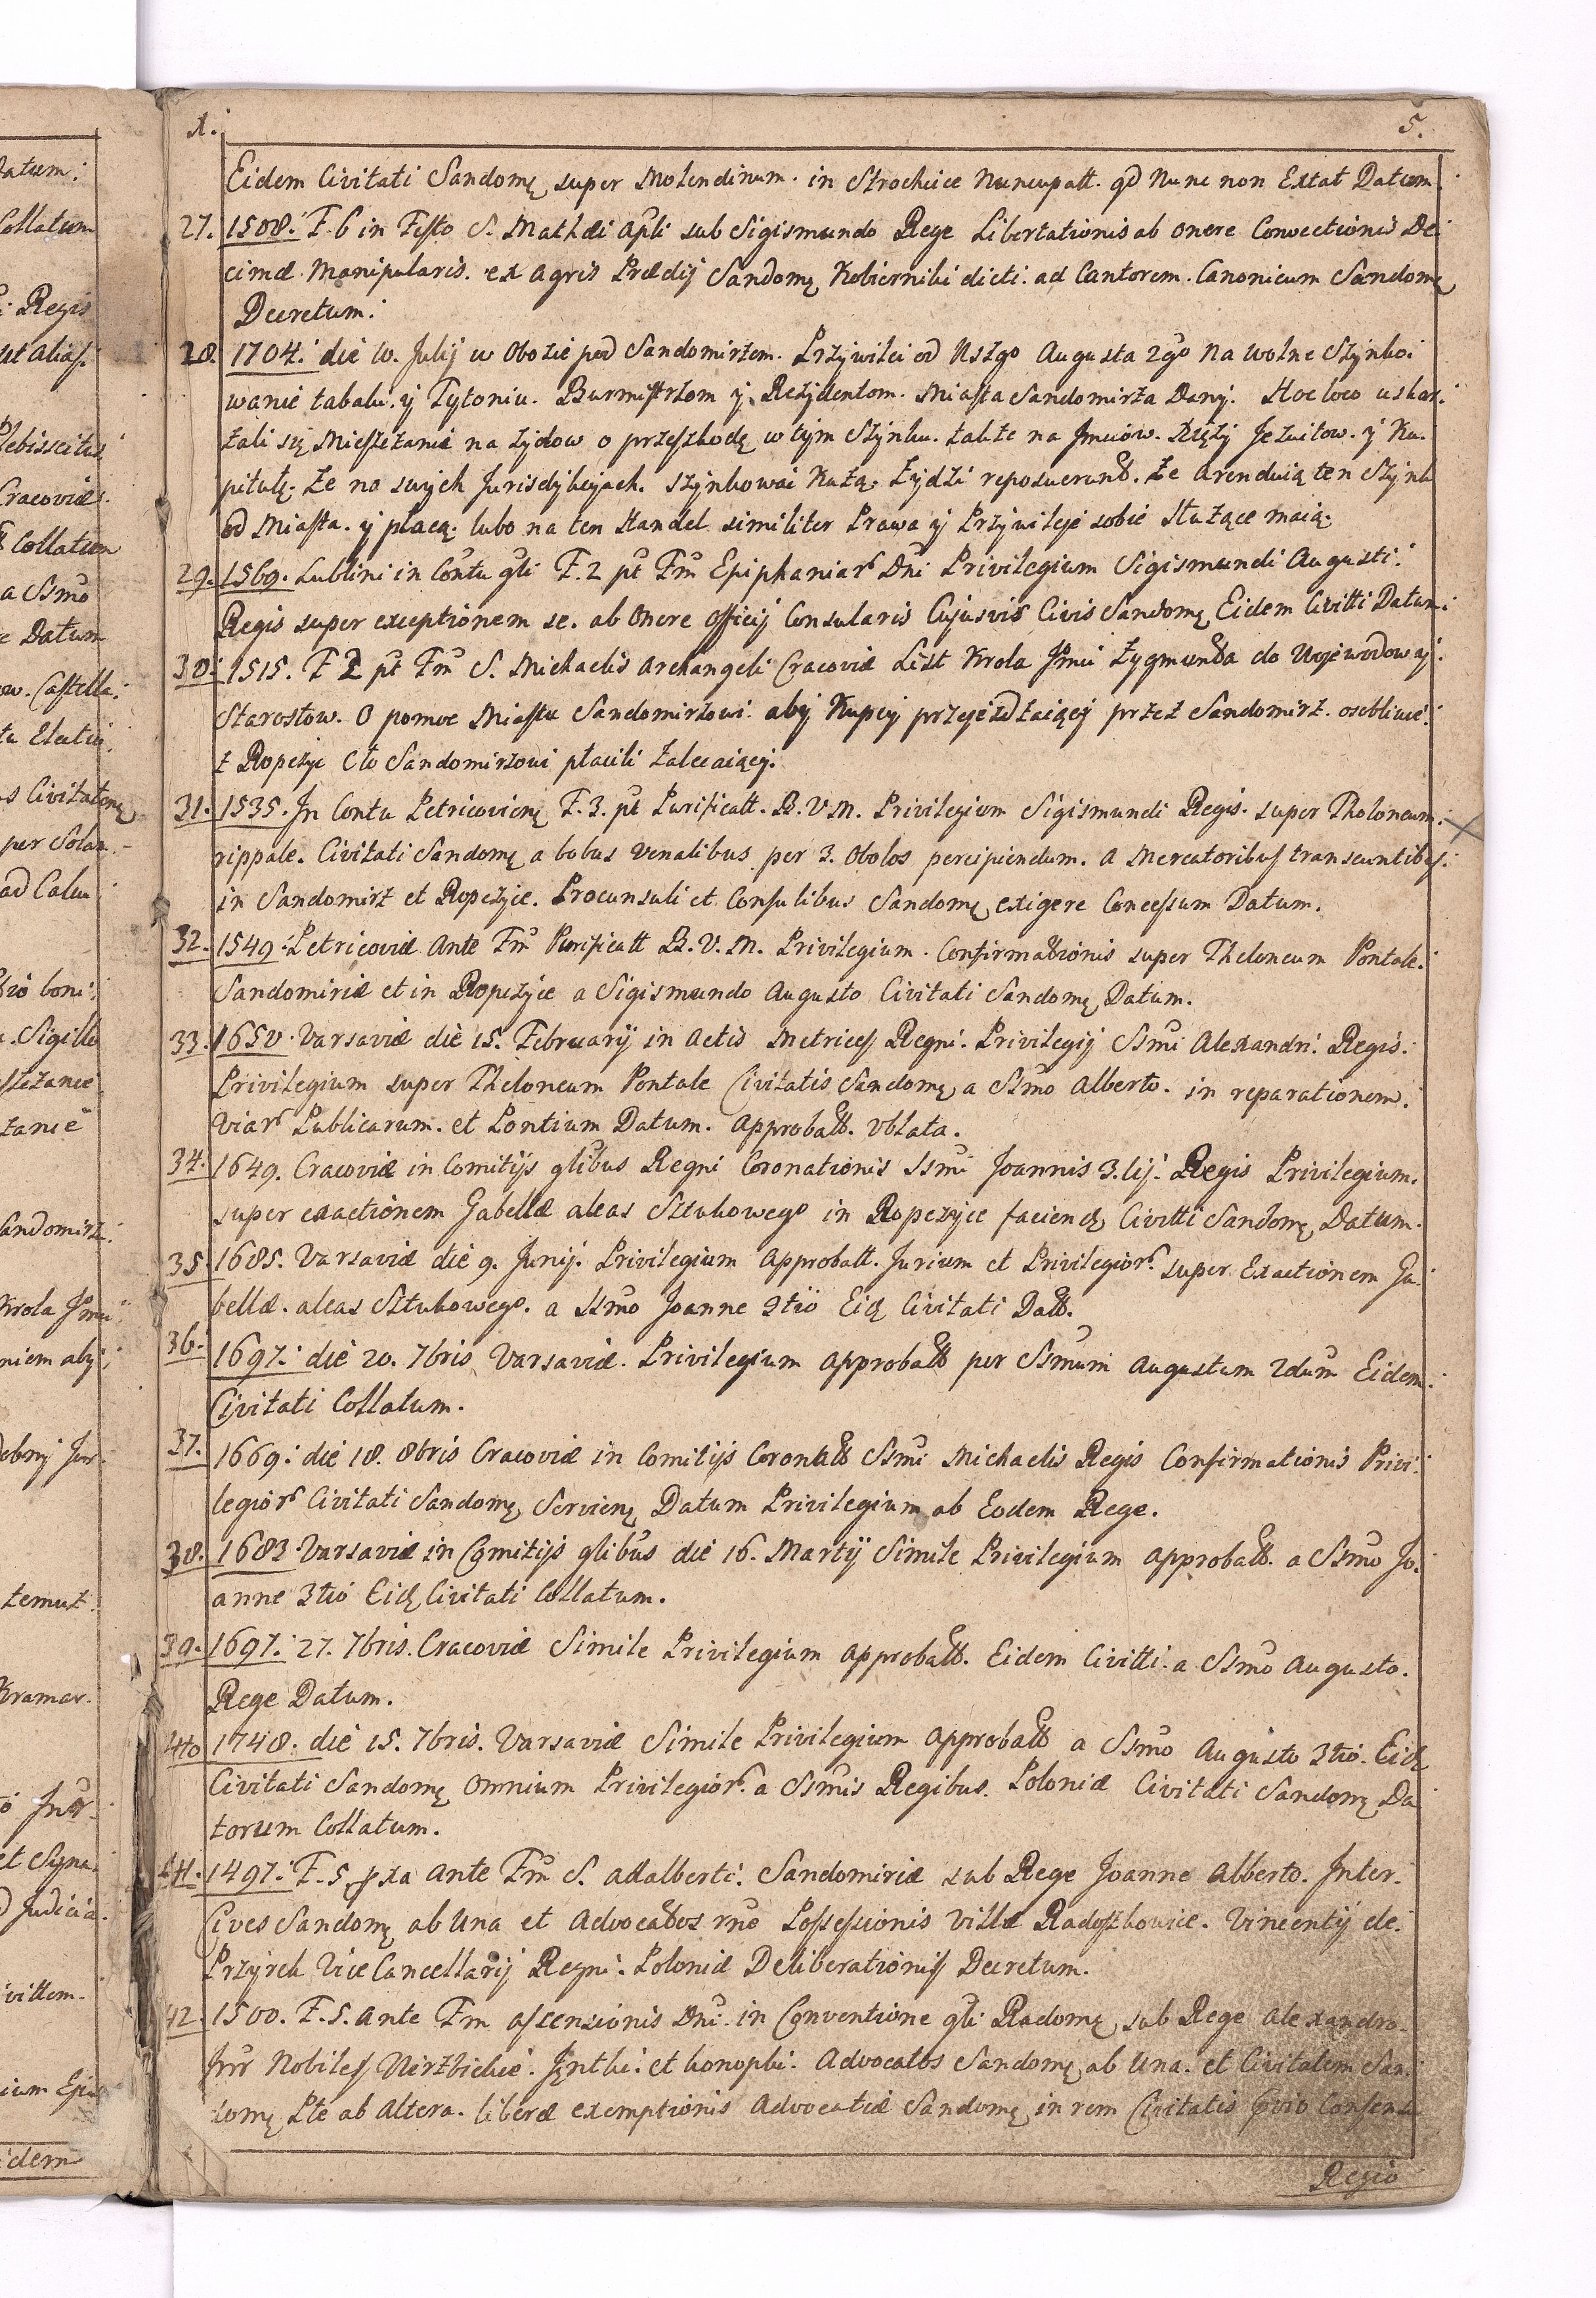 1. 5.
Eidem Civitati Sandomę super Molendinum. in Strochcice Nuncupatt. qd Nunc non Extat Datum
27. 1508. F. 6 in Festo S. Mathæi Apli sub Sigismundo Rege Libertationis ab onere Convectionis De
cimæ Manipularis. ex Agris Prædij Sandomę Kobierniki dicti. ad Cantorem. Canonicum Sandomę
Decretum.
28. 1704. die 10. Julij w Obozie pod Sandomirzem. Przywiley od Nszgo Augusta 2go Na wolne Szynko:
wanie tabaki. y Tytoniu. Burmistrzom y Rezydentom. Miasta Sandomirza Dany. Hoc loco uskar:
żali się Mieszczanie na Zydow o przeszkodę w tym Szynku. także na Jmciow. Xięży Jezuitow. y Ka.
pitułę. że na swych Jurisdykcyach. szynkować każą. Zydzi reposuerunt. że Arenduią ten Szynk
od Miasta. y płacą. lubo na ten Handel similiter Prawa y Przywileje sobie służące maią.
29. 1569. Lublini in Contu gli F. 2 pt Fm Epiphaniar Dni Privilegium Sigismundi Augusti.
Regis super exceptionem se. ab Onere officij Consularis Cujusvis Civis Sandomę Eidem Civitti Datum.
30. 1515. F 2 pt Fm S. Michaelis Archangeli Cracoviæ List Krola Jmci Zygmunta do Woiewodow y
Starostow. O pomoc Miastu Sandomirzowi. aby Kupcy przejeżdżaiący przez Sandomirz. osobliwie
z Ropczyc Cło Sandomirzowi płacili zalecaiący.
31. 1535. In Contu Petricovienę F. 3. pt Purificatt. B. V. M. Privilegium Sigismundi Regis. super Tholoneum.
rippale. Civitati Sandomę a bobus venalibus per 3. Obolos percipiendum. a Mercatoribus transeuntibus
in Sandomirz et Ropczyce. Proconsuli et Consulibus Sandomę exigere Concessum Datum.
32. 1549. Petricoviæ Ante Fm Purificatt B. V. M. Privilegium. Confirmationis super Theloneum Pontale.
Sandomiriæ et in Ropczyce a Sigismundo Augusto Civitati Sandomę Datum.
33. 1650. Varsaviæ die 15. February in Actis Metrices Regni. Privilegij Ssmi Alexandri Regis.
Privilegium super Theloneum Pontale Civitatis Sandomę a Ssmo Alberto. in reparationem.
Viar Publicarum. et Pontium Datum. Approbatt. Oblata.
34. 1649. Cracoviæ in Comitijs glibus Regni Coronationis Ssmi Joannis 3.tij. Regis Privilegium.
super exactionem Gabellæ aleas Sztukowego in Ropczyce faciendę Civitti Sandomę Datum.
35. 1685. Varsaviæ die 9. Junij. Privilegium Approbatt. Jurium et Privilegior super Exactionem Ga
bellæ. aleas Sztukowego. a Ssmo Joanne 3tio Eidę Civitati Datt.
36. 1697. die 20. 7bris Varsaviæ. Privilegium Approbatt per Ssmum Augustum 2dum Eidem.
Civitati Collatum.
37. 1669. die 18. 8bris Cracoviæ in Comitijs Coronatt Ssmi Michaelis Regis Confirmationis Privi:
legior Civitati Sandomę Servienę Datum Privilegium ab Eodem Rege.
38. 1683 Varsaviæ in Comitijs glibus die 16. Martij Simile Privilegium Approbatt. a Ssmo Jo.
anne 3tio Eidę Civitati Collatum.
39. 1697. 27. 7bris. Cracoviæ Simile Privilegium Approbatt. Eidem Civitti. a Ssmo Augusto.
Rege Datum.
40 1748. die 15. 7bris. Varsaviæ Simile Privilegium Approbatt a Ssmo Augusto 3tio. Eidę
Civitati Sandomę Omnium Privilegior. a Ssmis Regibus. Poloniæ Civitati Sandomę Da
torum Collatum.
41. 1497. F. 5. pxa Ante Fm S. Adalberti. Sandomiriæ sub Rege Joanne Alberto. Inter.
Cives Sandomę ab Una et Advocatos rno Possessionis Villæ Radoszkowice. Vincentij de.
Przyrek Vice Cancellarij Regni. Poloniæ Deliberationis Decretum.
42. 1500. F. 5. Ante Fm Ascensionis Dni. in Conventione gli Radomę sub Rege Alexandro.
Intr Nobiles Wirzbickie. Jęntki. et konopki. Advocatos Sandomę ab Una. et Civitatem San:
domę Pte ab Altera. liberæ exemptionis Advocatiæ Sandomę in rem Civitatis Prvio Consensu
Regio